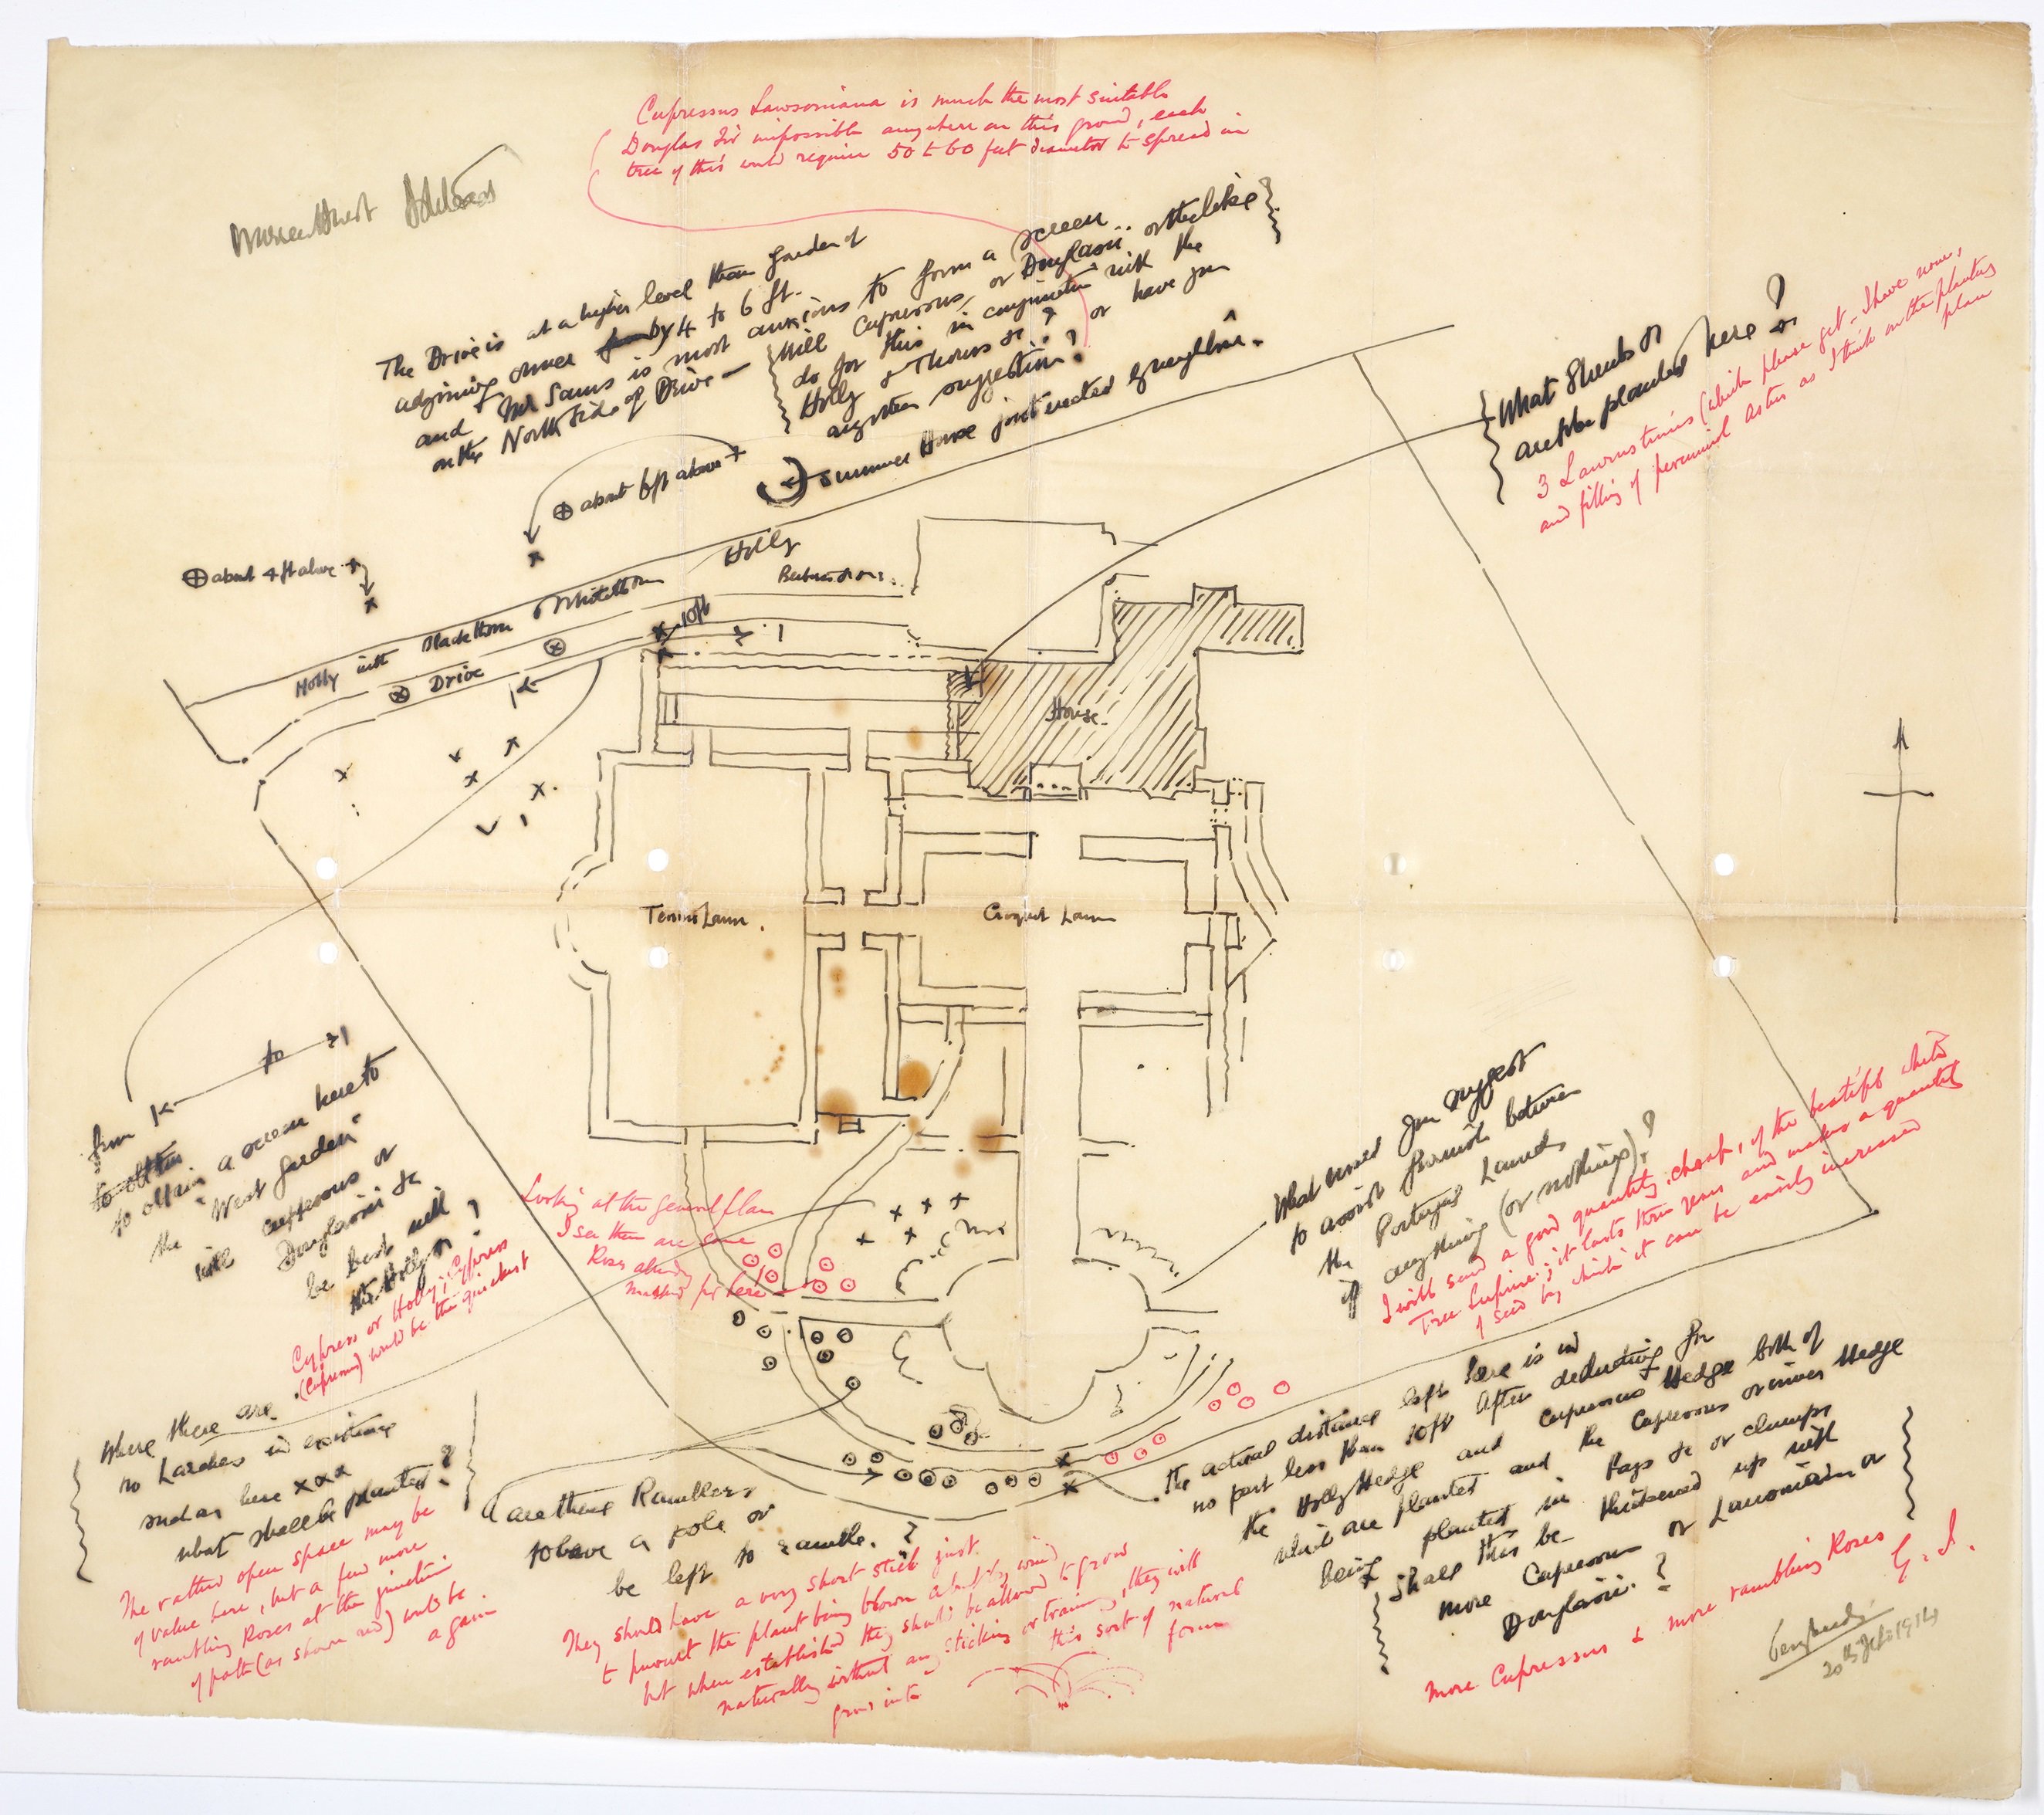 Cupressus Lawsoniana is much the most suitable
Douglas Fir impossible anywhere on this ground, each
tree of this would require 50 to 60 feet diameter to spread in
The Drive is at a higher level than garden of
adjoining owner by 4 to 6 ft.
and Mr Sams is most anxious to form a screen
on the North side of Drive —
Will Cupressus, or Douglasii or the like
do for this in conjunction with the
Holly & Thorns &c? or have you
any other suggestion?
Summer House just erected
⊕ about 6 ft above
⊕ about 4 ft above
What Shrubs &
are to be planted here?
3 Laurustinus (which please get - I have none,
and filling of perennial asters as I think on the planting
plan
Holly with Blackthorn & Whitethorn
Holly
Drive
10ft
House
Tennis Lawn.
Croquet Lawn
from
to
to obtain a screen here to
the "West Garden"
will cuppressus or
Douglasii &c
be best with
the Holly?
Cypress or Holly; Cypress
(Cupressus) would be the quickest
Looking at the general plan
I see there are some
Roses already
marked for here
What would you suggest
to assist furnish between
the Portugal Laurels
if anything (or nothing)?
I will send a good quantity, of the beautiful white
Tree Lupine; it lasts three years and makes a quantity
of seed by which it can be easily increased
Where there are
no Larches in existing
such as here x x x
what shall be planted?
The rather open space may be
of value here, but a few more
rambling Roses at the junction
of path (as shown red) would be
a gain
are these Ramblers
to have a pole or
be left to ramble.?
They should have a very short stick just
to prevent the plant being blown about by wind
but when established they should be allowed to grow
naturally without any sticking or training, they will
grow into this sort of natural
form
The actual distance left here is in
no part less than 10ft after deducting for
the Holly Hedge and Cupressus Hedge both of
which are planted and the Cupressus or inner Hedge
being planted in bays &c or clumps
Shall this be thickened up with
more Cupressus or Lawsoniana or
Douglasii.?
More Cupressus & more rambling Roses
G. J.